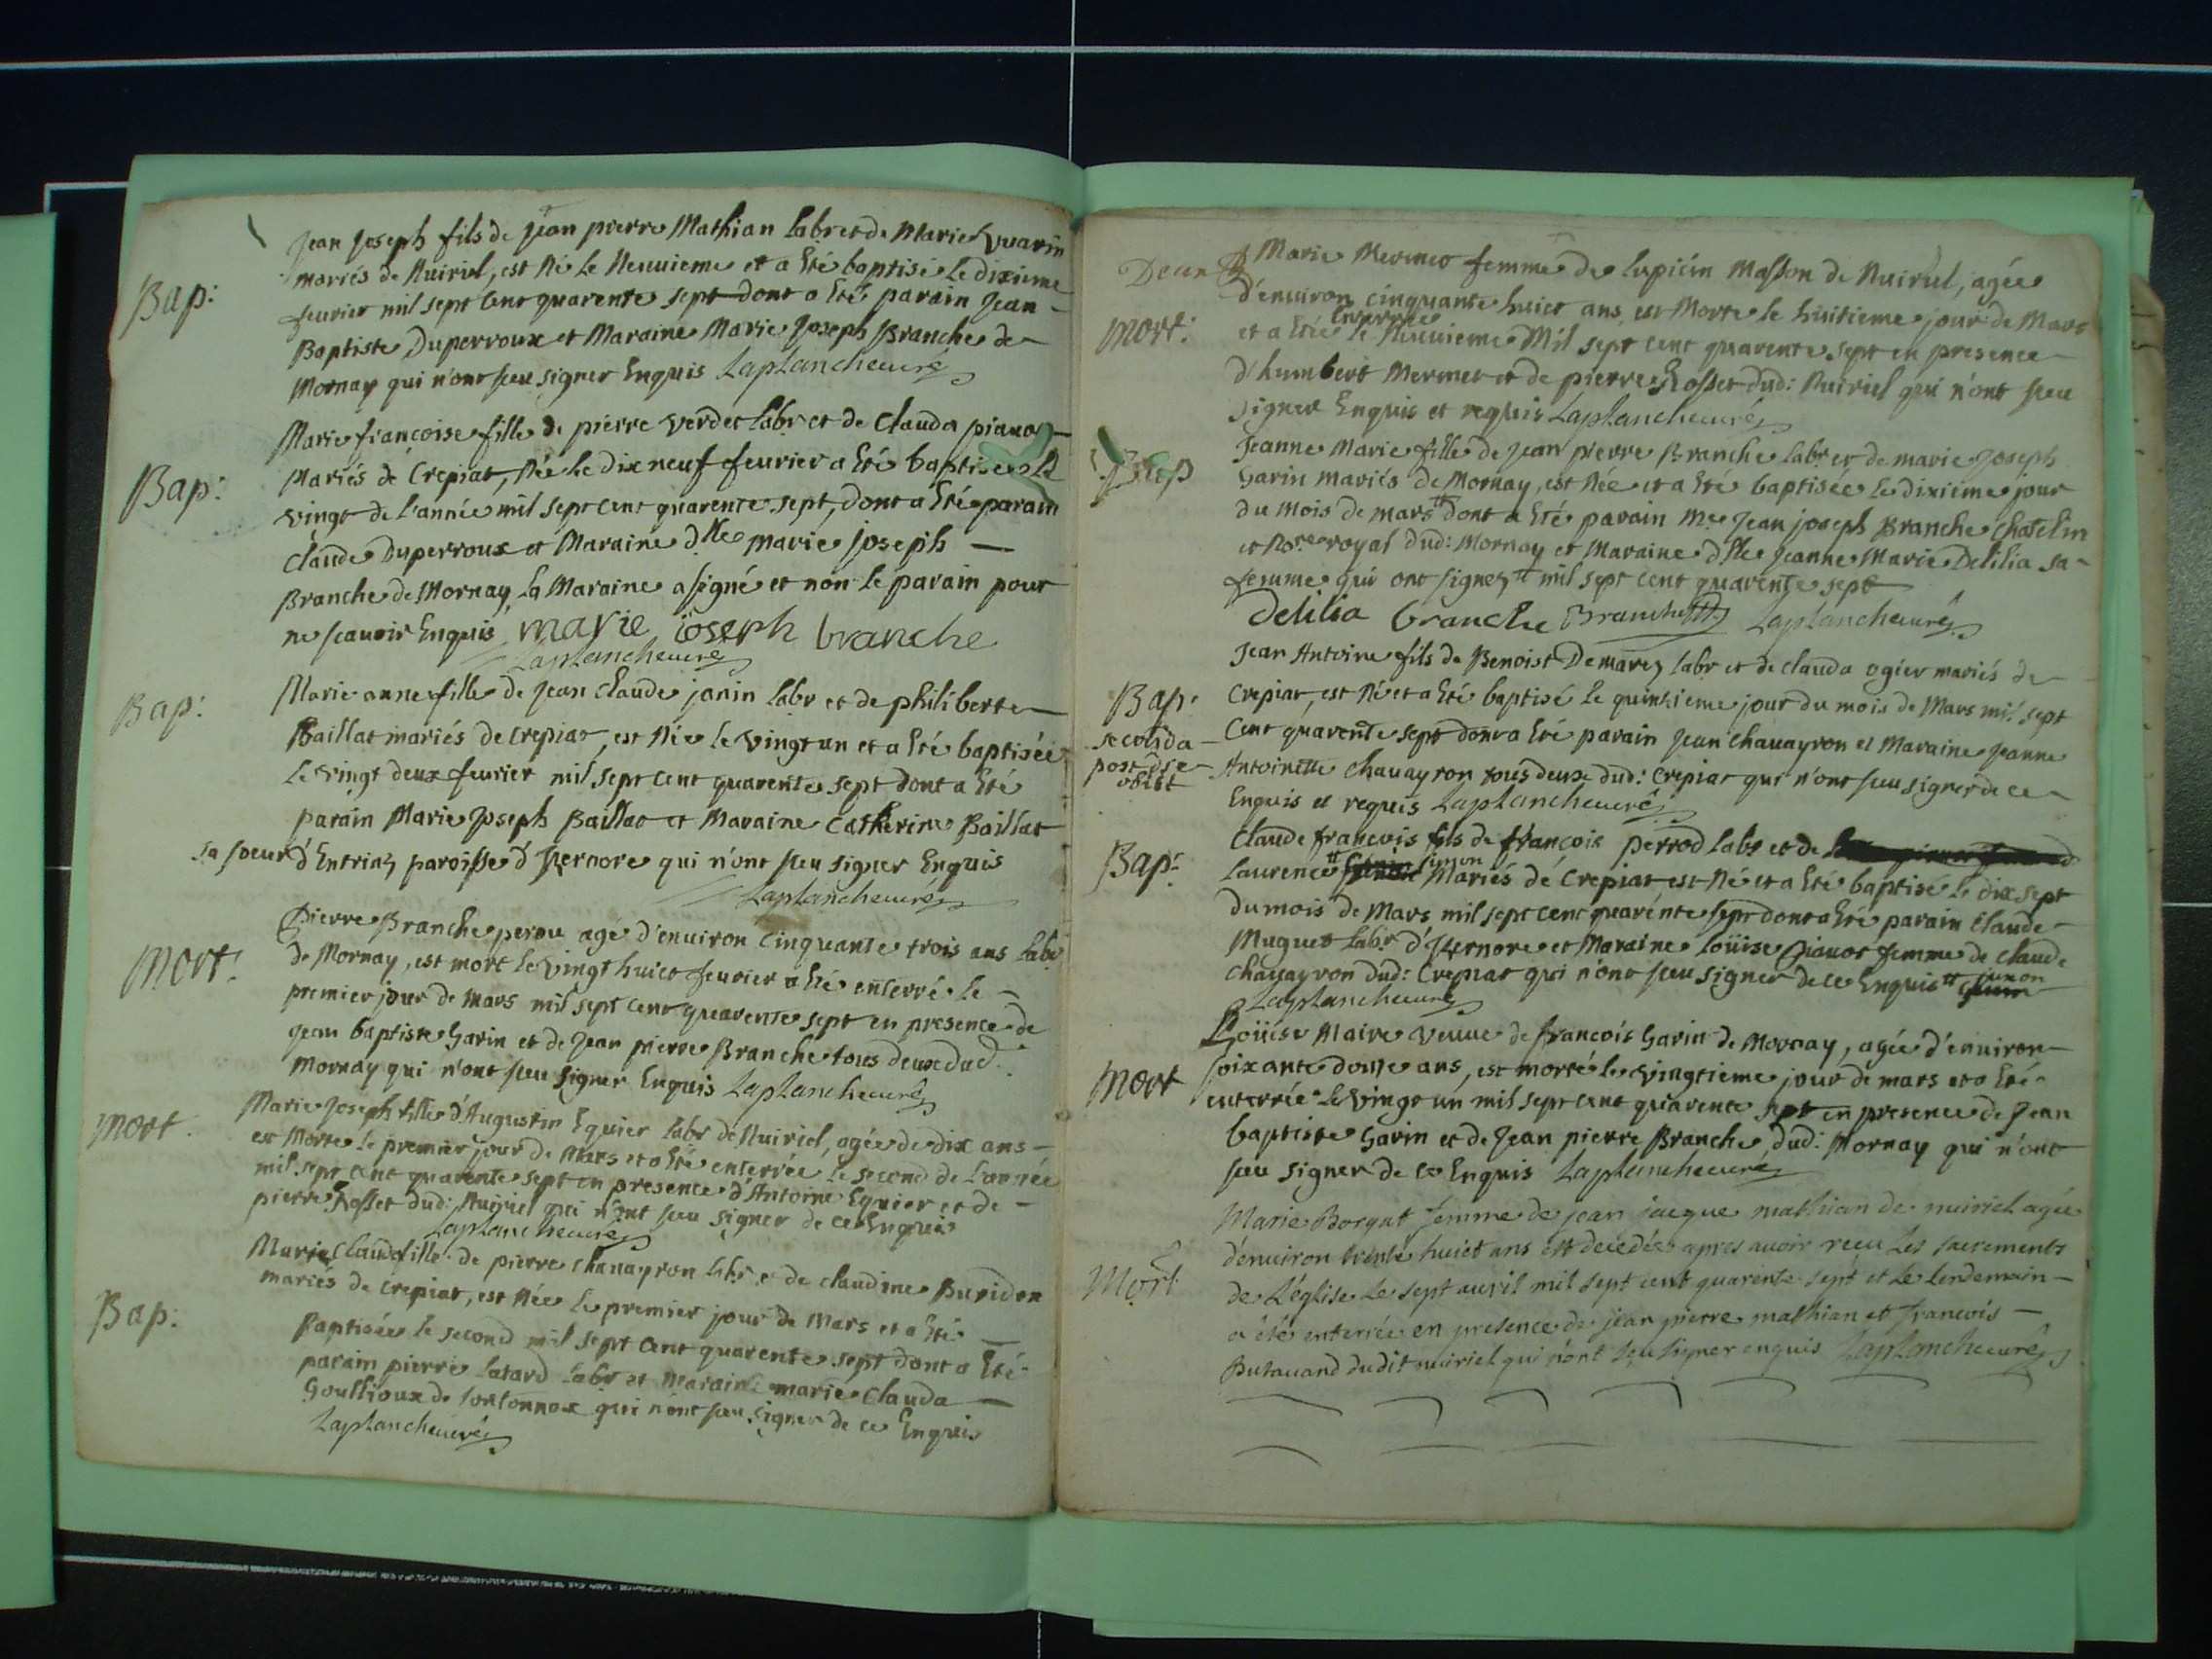 Jean Joseph fils de Jean pierre Mathian labr et de Marie Vuarin
Bap: mariés de Nuiriel, est Né le Neuuieme et a Eté baptisé le dixieme
feurier mil sept cent quarente sept dont a Eté parain Jean -
Baptiste Duperroux et Maraine Marie Joseph Branche de
Mornay qui n'ont sceu signer Enquis Laplanche curé
Marie françoise fille de pierre verdet labr et de Clauda pianot
Bap: Mariés de Crepiat, Née le dix neuf feurier a Eté baptisée le
vingt de l'année mil sept cent quarente sept, dont a Eté parain
Claude Duperroux et Maraine dlle marie joseph -
Branche de Mornay, la Maraine a signé et non le parain pour
ne scauoir Enquis marie ioseph branche
Laplanche curé
Bap: Marie anne fille de Jean Claude janin labr et de philiberte
Baillat mariés de Crepiat, est Née le vingt un et a Eté baptisée
le vingt deux feurier mil sept cent quarente sept dont a Eté
parain Marie Joseph Baillat et Maraine Catherine Baillat
sa soeur d'Entriaz paroisse d'Izernore qui n'ont sceu signer Enquis
Laplanche curé
Pierre Branche perou agé d'enuiron Cinquante trois ans labr
Mort: de Mornay, est mort le vingt huict feurier a Eté enterré le -
premier jour de mars mil sept cent quarente sept en presence de
jean baptiste Garin et de Jean pierre Branche tous deux dud:
Mornay qui n'ont sceu signer Enquis Laplanche curé
Mort. Marie Joseph fille d'Augustin Equier labr de Nuiriel, agée de dix ans -
est Morte le premier jour de Mars et a Eté enterrée le second de l'année
mil sept cent quarente sept en presence d'Antoine Equier et de -
pierre Rosset dud: Nuiriel qui n'ont sceu signer de ce Enquis
Laplanche curé
Marie Clauda fille de pierre Chanayron labr et de claudine Buridon
Bap: mariés de Crepiat, est Née le premier jour de Mars et a Eté -
Baptisée le second mil sept cent quarente sept dont a Eté
parain pierre labr et Maraine marie Clauda -
Goullioux de qui n'ont sceu signer de ce Enquis
Laplanche curé
Marie Mermet femme de lupicin Masson de Nuiriel, agée
Mort: d'enuiron cinquante huict ans est Morte le huitieme jour de Mars
et a Eté Enterrée le Neuuieme Mil sept cent quarente sept en presence
d'humbert Mermet et de pierre Rosset dud: Nuiriel qui n'ont sceu
signer Enquis et requis Laplanche curé
Bap Jeanne Marie fille de Jean pierre Branche labr et de marie Joseph
Garin mariés de Mornay, est Née et a Eté baptisée le dixiéme jour
du mois de mars # dont a Eté parain Me Jean joseph Branche Chatelin
et Nore royal dud: Mornay et Maraine dlle Jeanne Marie Delilia sa -
femme qui ont signez # mil sept cent quarente sept
Delilia branche Branche Laplanche curé
Jean Antoine fils de Benoist Demarez labr et de clauda ogier mariés de
Bap. Crepiat, est Né et a Eté baptisé le quinzieme jour du mois de Mars mil sept
secunda Cent quarente sept dont a Eté parain Jean Chauayron et Maraine Jeanne
post die Antoinette Chauayron tous deux dud: Crepiat qui n'ont sceu signer de ce
obiit Enquis et requis Laplanche curé
Claude francois fils de françois perrod labr et de
Bap: Laurence # simon Mariés de Crepiat est Né et a Eté baptisé le dix sept
du mois de Mars mil sept cent quarente sept dont a Eté parain Claude -
Muguet labr d'Izernore et Maraine loüise pianot femme de claude
chauayron dud: Crepiat qui n'ont sceu signer de ce Enquis # simon
Laplanche curé
Loüise Maire veuue de francois Garin de Mornay, agée d'enuiron -
Mort soixante douze ans, est morte le vingtieme jour de mars et a Eté
enterrée le vingt un mil sept cent quarente sept en presence de Jean
baptiste Garin et de Jean pierre Branche dud: Mornay qui n'ont
sceu signer de ce Enquis Laplanche curé
Marie Borgat femme de jean jacque mathian de nuiriel agée
d'enuiron trente huict ans est decedée apres auoir receu les sacrements
Mort de L'église Le sept auril mil sept cent quarente sept et le lendemain -
a été enterrée en presence de jean pierre mathian et francois -
Butauand dudit nuiriel qui n'ont sceu signer enquis Laplanche curé